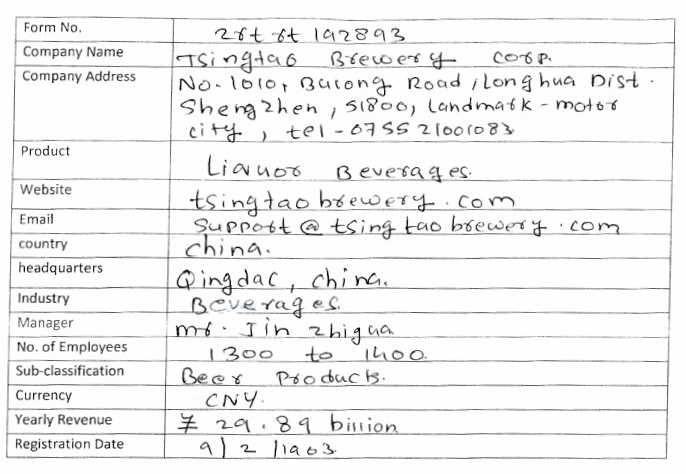 Form No. 2rt rt 192893
Company Name Tsingtao Brewery corp.
Company Address No-1010, Bulong Road, Longhua Dist.
Shengzhen, 51800, Landmark - motor
city, tel - 0755 21001083
Product Liquor Beverages.
Website tsingtaobrewery.com
Email support@tsingtaobrewery.com
country China.
headquarters Qingdac, china.
Industry Beverages.
Manager mr. Jin zhigua
No. of Employees 1300 to 1400.
Sub-classification Beer Products.
Currency CNY.
Yearly Revenue ¥ 29.89 billion
Registration Date 9/2/1903